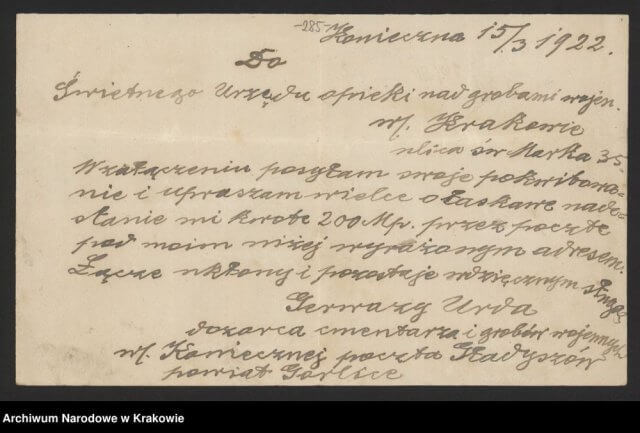 -285-
Konieczna 15/3 1922.
Do
Świetnego Urzędu opieki nad grobami wojen.
w/. Krakowie
ulica św Marka 35.
W załączeniu posyłam swoje pokwitowa-
nie i upraszam wielce o łaskawe nade-
słanie mi kwote 200 Mp. przez poczte
pod moim niżej wyrażonym adresem.
Łącze ukłony i pozostaje wdzięcznym sługą
Gerwazy Urda
dozorca cmentarza i grobów wojennych
w/. Koniecznej poczta Gładyszów
powiat Gorlice
Archiwum Narodowe w Krakowie